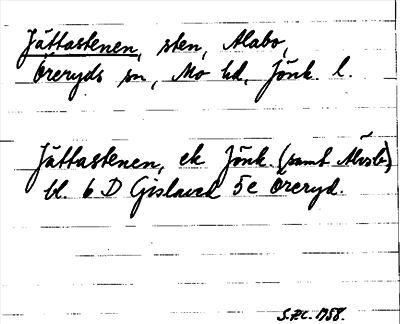 Jättastenen, sten, Alabo,
Öreryds sn, Mo hd, Jönk. l.
Jättastenen, ek Jönk. (samt Älvsb)
bl. 6 D Gislaved 5e Öreryd.
S.F.C. 1958.